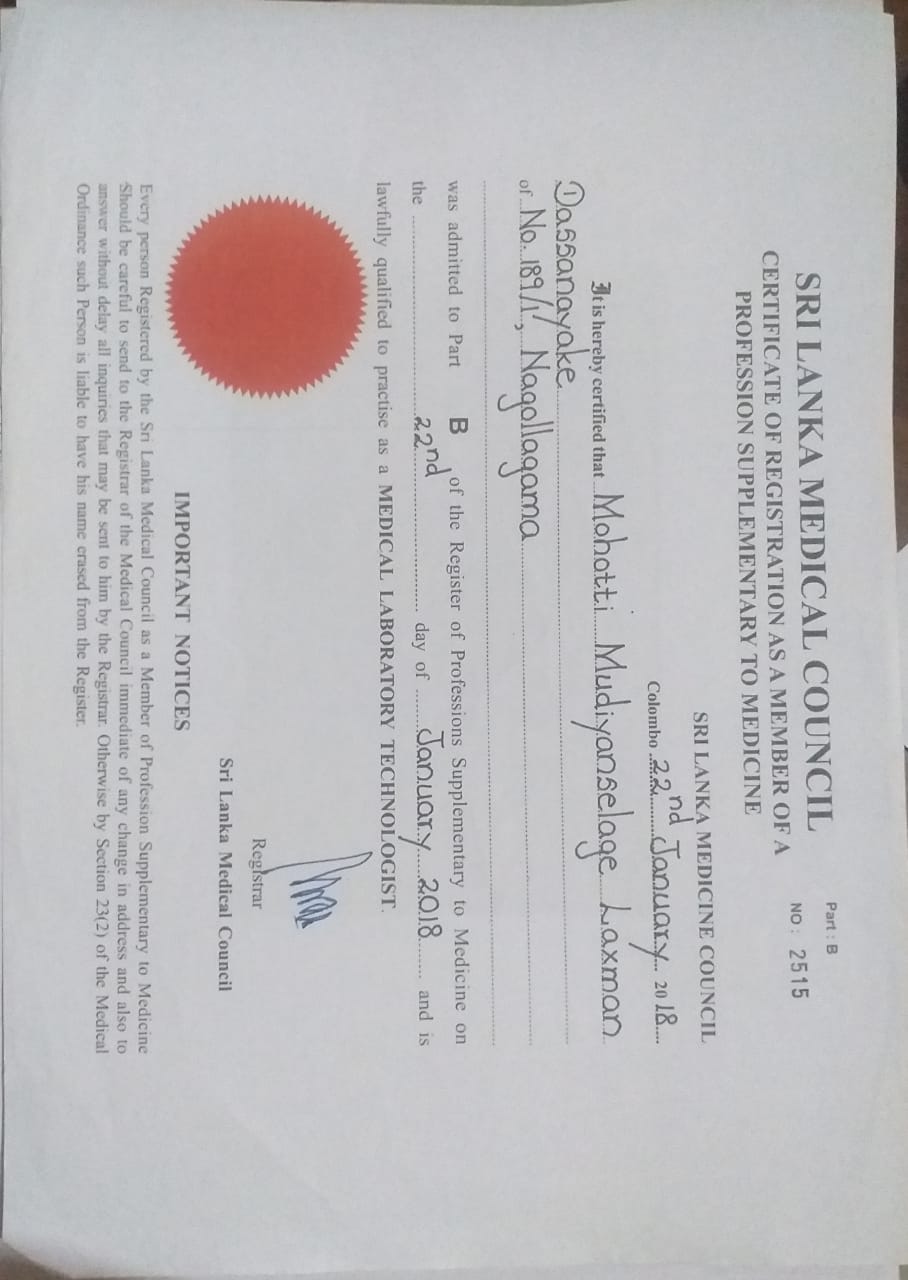 Part : B
SRI LANKA MEDICAL COUNCIL
NO : 2515
CERTIFICATE OF REGISTRATION AS A MEMBER OF A
PROFESSION SUPPLEMENTARY TO MEDICINE
SRI LANKA MEDICINE COUNCIL
Colombo 22nd January 2018
It is hereby certified that Mohotti Mudiyanselage Laxman
Dassanayake
of No. 189/1, Nagollagama
was admitted to Part B of the Register of Professions Supplementary to Medicine on
the 22nd day of January 2018 and is
lawfully qualified to practise as a MEDICAL LABORATORY TECHNOLOGIST.
Registrar
Sri Lanka Medical Council
IMPORTANT NOTICES
Every person Registered by the Sri Lanka Medical Council as a Member of Profession Supplementary to Medicine
Should be careful to send to the Registrar of the Medical Council immediate of any change in address and also to
answer without delay all inquiries that may be sent to him by the Registrar. Otherwise by Section 23(2) of the Medical
Ordinance such Person is liable to have his name erased from the Register.